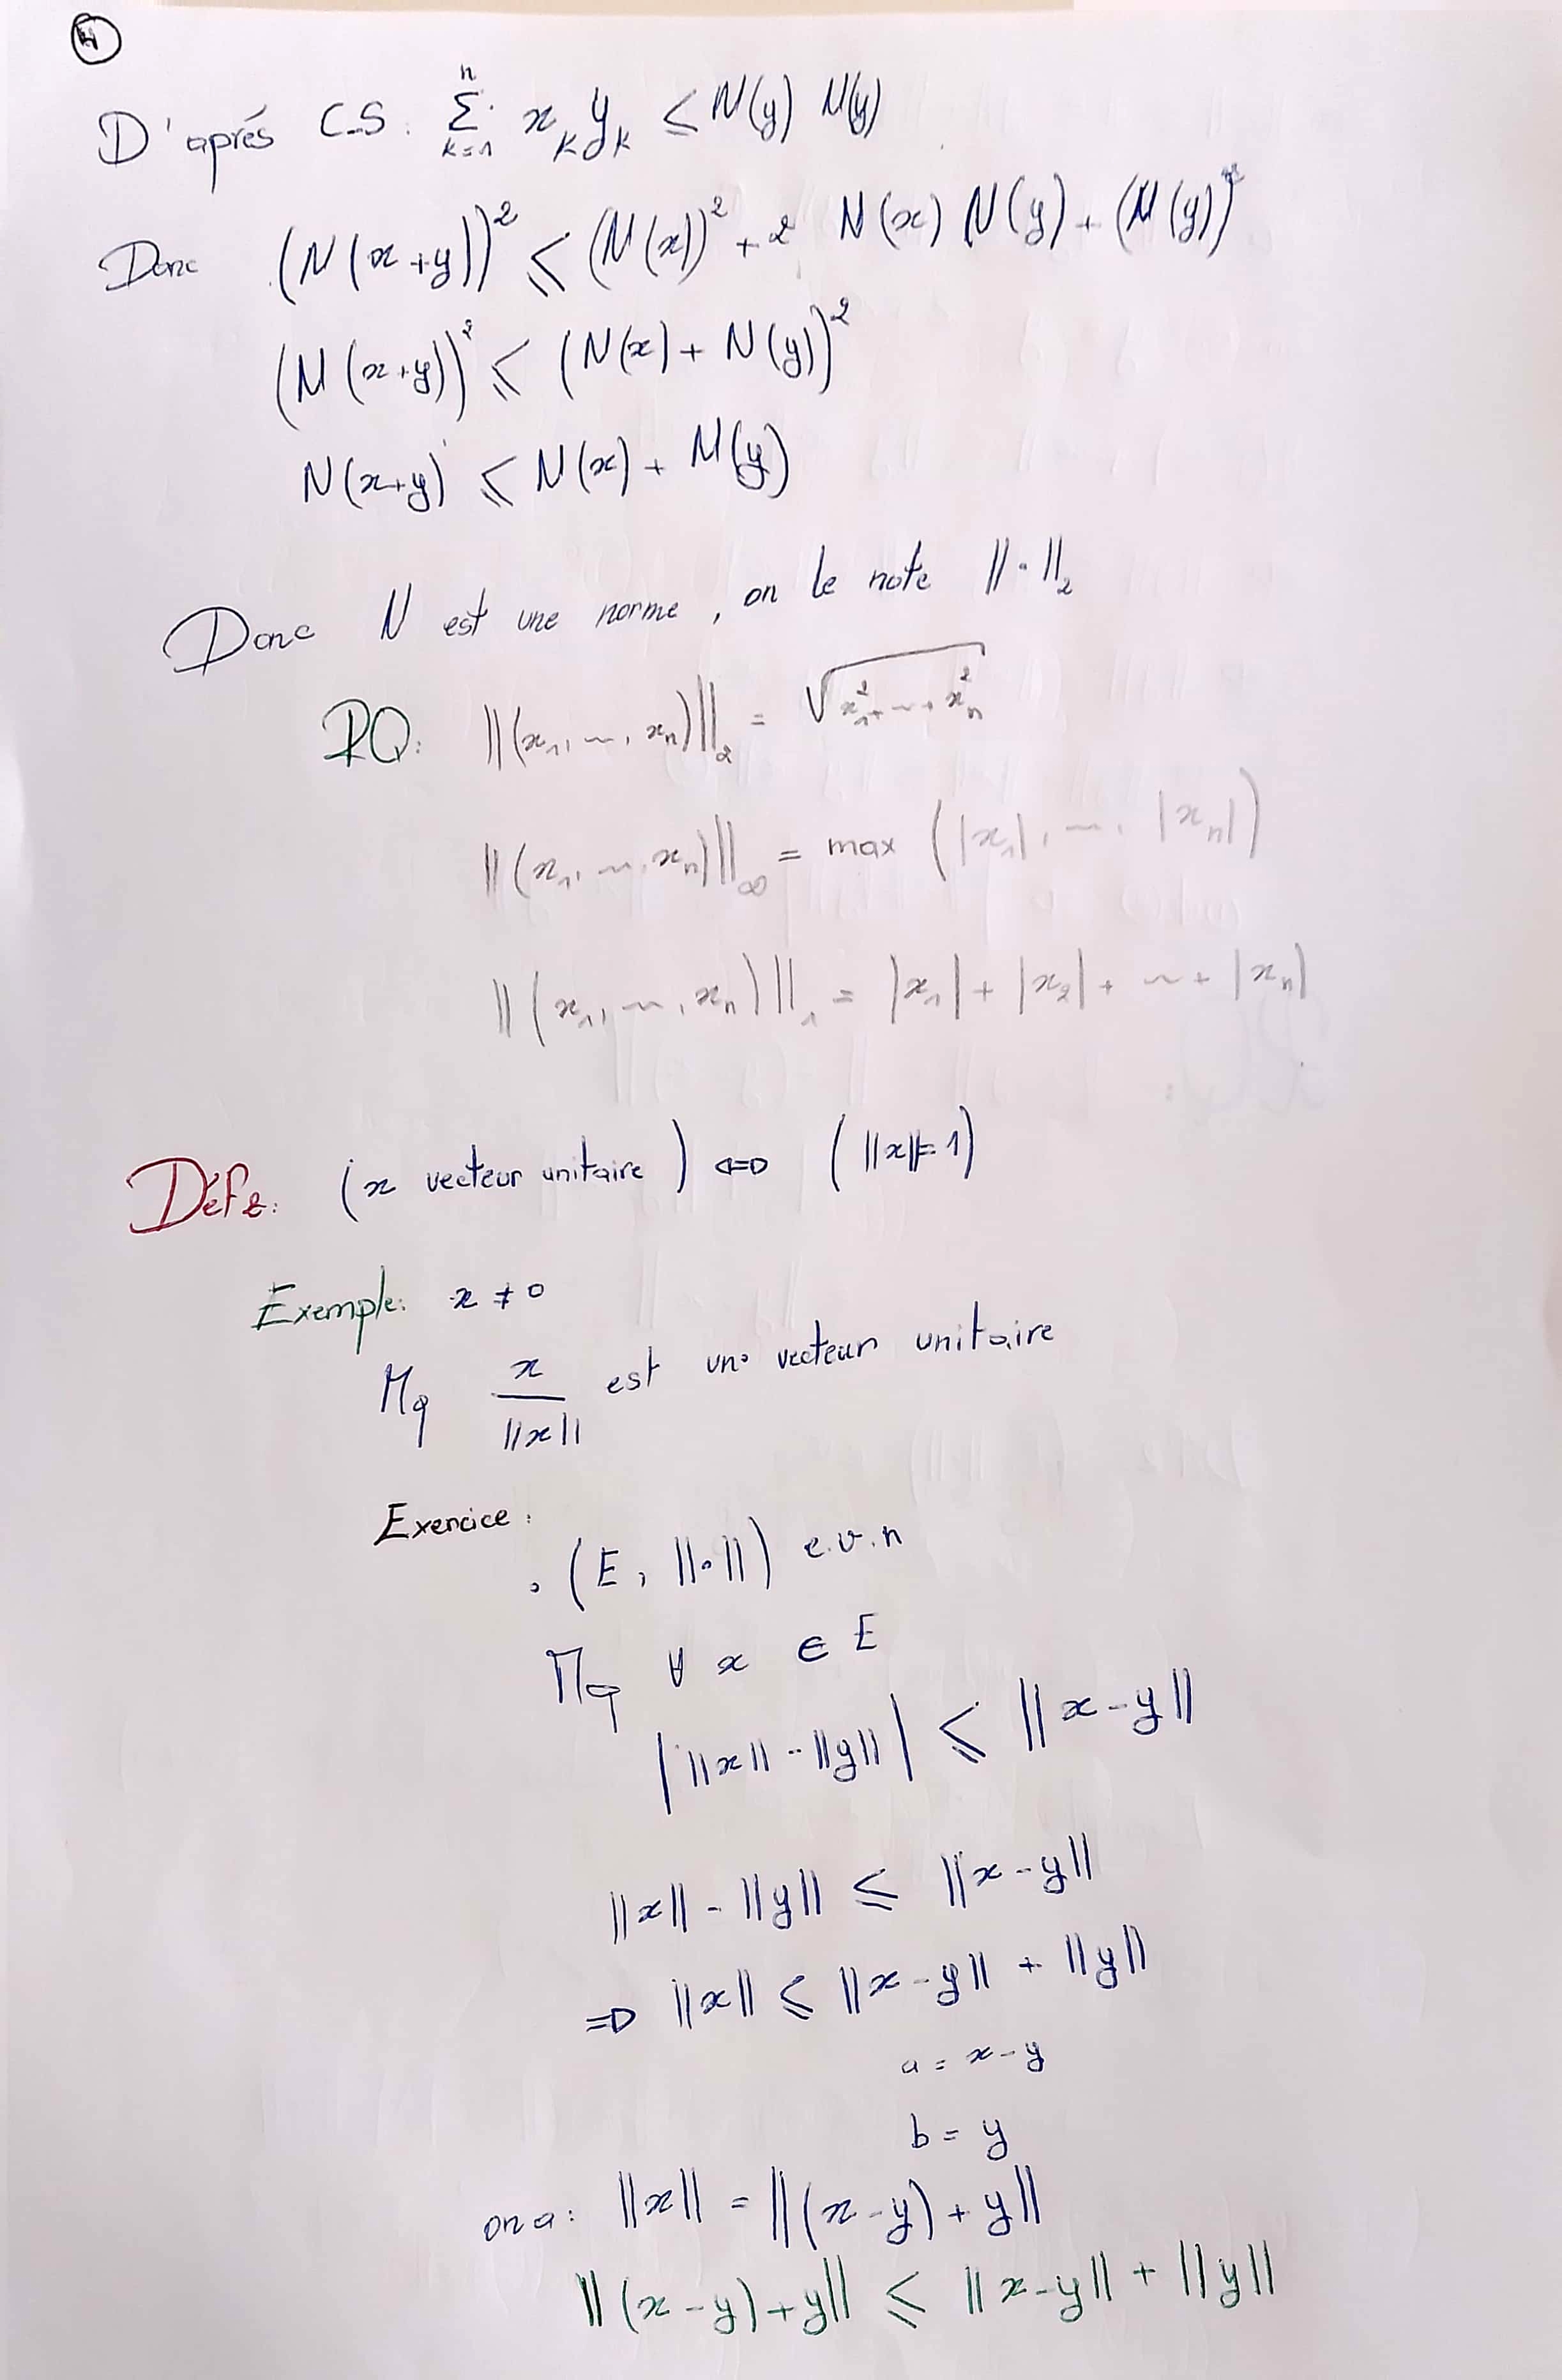 4
D'aprés C-S : ∑_{k=1}^{n} x_k y_k ≤ N(y) N(y)
Donc (N(x+y))² ≤ (N(x))² + 2 N(x) N(y) + (N(y))²
(N(x+y))² ≤ (N(x) + N(y))²
N(x+y) ≤ N(x) + N(y)
Donc N est une norme, on le note ||·||₂
RQ: ||(x₁, ~, xₙ)||₂ = √(x₁² + ~ + xₙ²)
||(x₁, ~, xₙ)||_∞ = max (|x₁|, ~, |xₙ|)
||(x₁, ~, xₙ)||₁ = |x₁| + |x₂| + ~ + |xₙ|
Déf 2: (x vecteur unitaire) ⇔ (||x|| = 1)
Exemple: x ≠ 0
Mq x/||x|| est un vecteur unitaire
Exercice :
• (E, ||·||) e.v.n
Mq ∀ x ∈ E
| ||x|| - ||y|| | ≤ ||x-y||
||x|| - ||y|| ≤ ||x-y||
⇒ ||x|| ≤ ||x-y|| + ||y||
a = x-y
b = y
on a: ||x|| = ||(x-y)+y||
||(x-y)+y|| ≤ ||x-y|| + ||y||